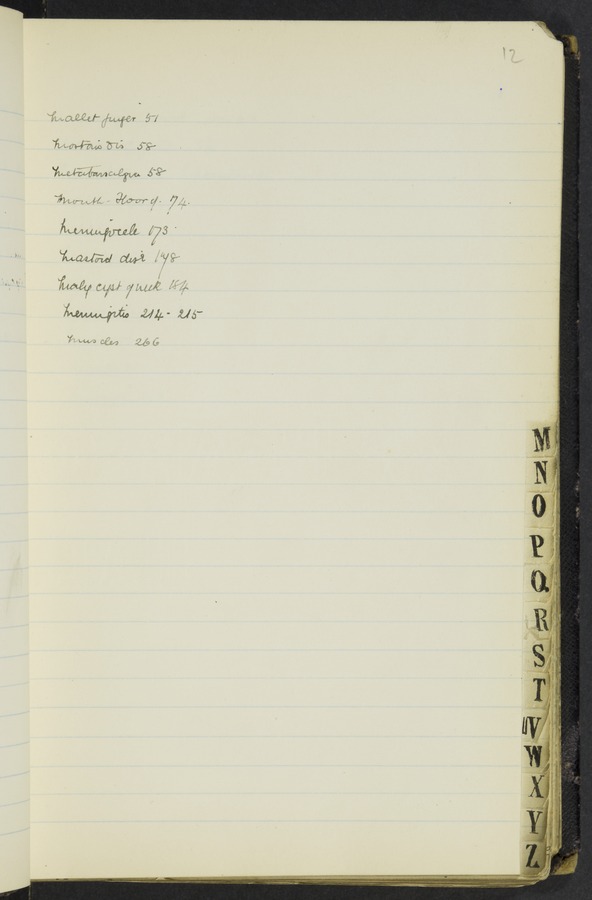 12
Mallet finger 51
Mortons Dis 58
Metatarsalgia 58
Mouth - Floor of. 74.
Meningocele 173
Mastoid disе 148
Malig cyst of neck 184
Meningitis 214 - 215
Muscles 266
M
N
O
P
Q.
R
S
T
UV
W
X
Y
Z